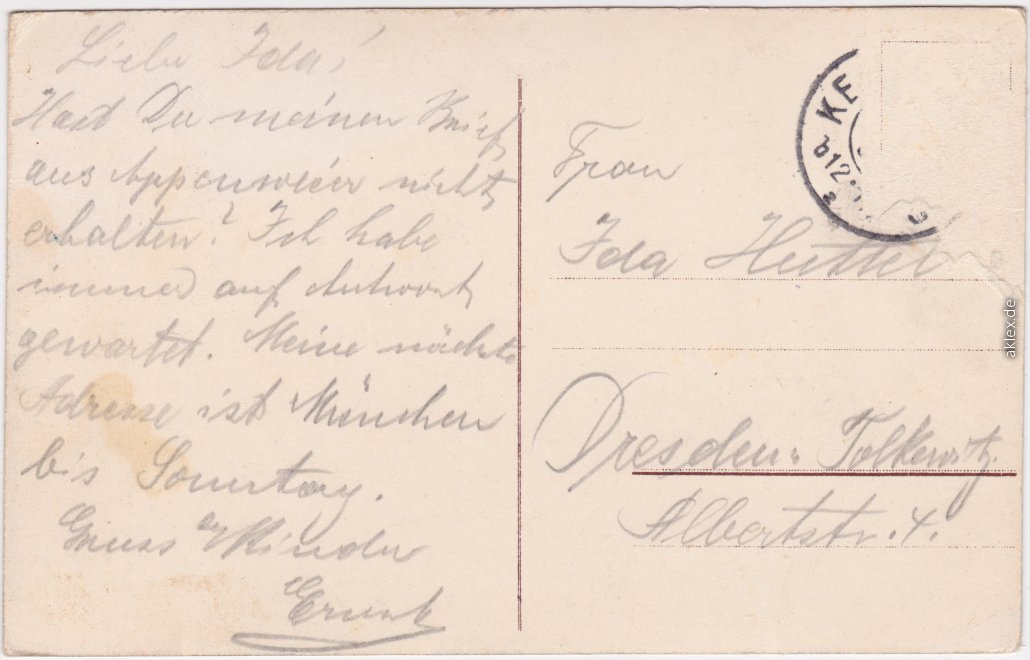 Liebe Ida!
Hast Du meinen Brief
aus Appenweier nicht
erhalten? Ich habe
immer auf Antwort
gewartet. Meine nächste
Adresse ist München
bis Sonntag.
Gruss a/Kinder
Ernst
KE
b12
Frau
Ida Huttel
Dresden-Tolkewitz
Albertstr. 4.
aklex.de